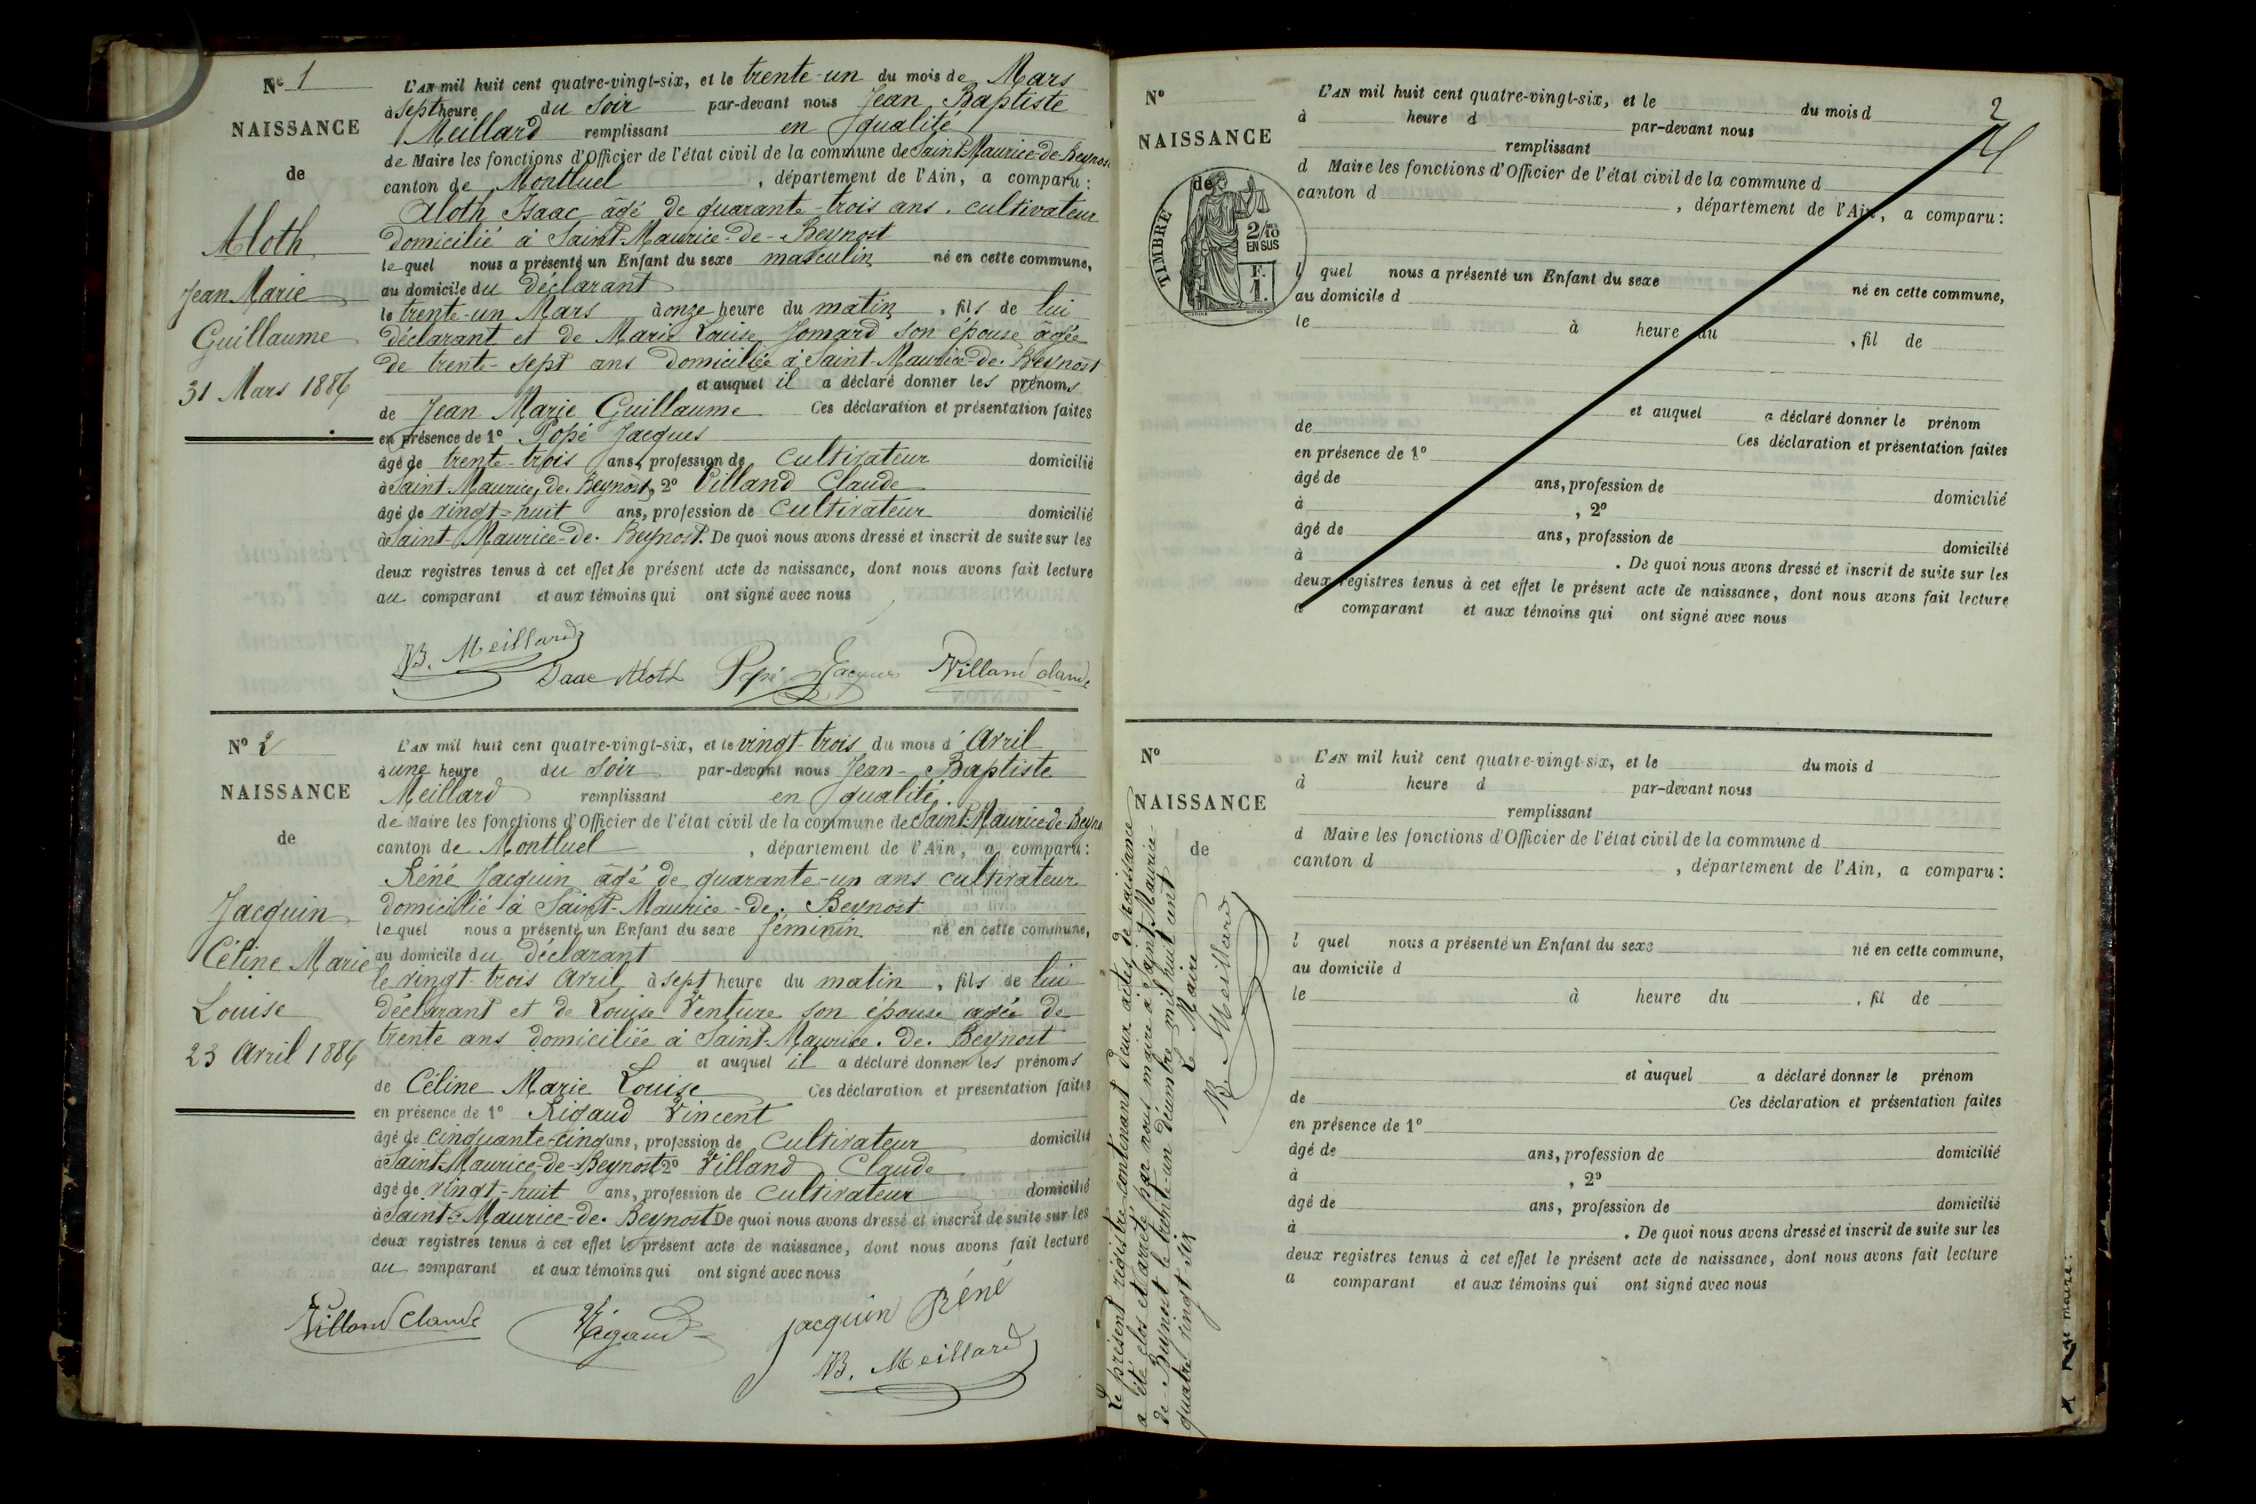 Nº 1
NAISSANCE
de
Aloth
Jean Marie
Guillaume
31 Mars 1886
L'AN mil huit cent quatre-vingt-six, et le trente-un du mois de Mars
à Sept heure du Soir par-devant nous Jean Baptiste
Meillard remplissant en qualité
de Maire les fonctions d'Officier de l'état civil de la commune de Saint-Maurice-de-Beynost
canton de Montluel , département de l'Ain, a comparu :
Aloth Isaac âgé de quarante-trois ans. cultivateur
domicilié à Saint-Maurice-de-Beynost
lequel nous a présenté un Enfant du sexe masculin né en cette commune,
au domicile du déclarant
le trente-un Mars à onze heure du matin , fils de lui
déclarant et de Marie Louise Jomard son épouse âgée
de trente-sept ans domiciliée à Saint-Maurice-de-Beynost
et auquel il a déclaré donner les prénoms
de Jean Marie Guillaume Ces déclaration et présentation faites
en présence de 1º Popé Jacques
âgé de trente-trois ans, profession de Cultivateur domicilié
à Saint-Maurice-de-Beynost, 2º Villand Claude
âgé de vingt-huit ans, profession de Cultivateur domicilié
à Saint-Maurice-de-Beynost. De quoi nous avons dressé et inscrit de suite sur les
deux registres tenus à cet effet le présent acte de naissance, dont nous avons fait lecture
au comparant et aux témoins qui ont signé avec nous
JB. Meillard
Isaac Aloth Popé Jacques Villand claude
Nº 2
NAISSANCE
de
Jacquin
Céline Marie
Louise
23 Avril 1886
L'AN mil huit cent quatre-vingt-six, et le vingt-trois du mois d'Avril
à une heure du Soir par-devant nous Jean-Baptiste
Meillard remplissant en qualité
de Maire les fonctions d'Officier de l'état civil de la commune de Saint-Maurice de Beyno
canton de Montluel , département de l'Ain, a comparu :
Réné Jacquin âgé de quarante-un ans cultivateur
domicilié à Saint-Maurice-de-Beynost
lequel nous a présenté un Enfant du sexe féminin né en cette commune,
au domicile du déclarant
le vingt-trois Avril à sept heure du matin , fils de lui
déclarant et de Louise Venture son épouse agée de
trente ans domiciliée à Saint-Maurice-de-Beynost
et auquel il a déclaré donner les prénoms
de Céline Marie Louise Ces déclaration et présentation faites
en présence de 1º Rigaud Vincent
âgé de cinquante-cinq ans, profession de Cultivateur domicilié
à Saint-Maurice-de-Beynost 2º Villand Claude
âgé de vingt-huit ans, profession de Cultivateur domicilié
à Saint-Maurice-de-Beynost De quoi nous avons dressé et inscrit de suite sur les
deux registres tenus à cet effet le présent acte de naissance, dont nous avons fait lecture
au comparant et aux témoins qui ont signé avec nous
Villand Claude Rigaud Jacquin Réné
JB. Meillard
2
Nº
NAISSANCE
de
TIMBRE
2/10 EN SUS
F. 1.
L'AN mil huit cent quatre-vingt-six, et le du mois d
à heure d par-devant nous
remplissant
d Maire les fonctions d'Officier de l'état civil de la commune d
canton d , département de l'Ain, a comparu :
l quel nous a présenté un Enfant du sexe né en cette commune,
au domicile d
le à heure du , fil de
et auquel a déclaré donner le prénom
de Ces déclaration et présentation faites
en présence de 1º
âgé de ans, profession de domicilié
à , 2º
âgé de ans, profession de domicilié
à . De quoi nous avons dressé et inscrit de suite sur les
deux registres tenus à cet effet le présent acte de naissance, dont nous avons fait lecture
a comparant et aux témoins qui ont signé avec nous
Nº
NAISSANCE
de
Le présent registre contenant deux actes de naissance
a été clos et arrêté par nous maire à Saint-Maurice-
de-Beynost le trente-un décembre mil huit cent
quatre vingt six
Le Maire
JB. Meillard
L'AN mil huit cent quatre-vingt-six, et le du mois d
à heure d par-devant nous
remplissant
d Maire les fonctions d'Officier de l'état civil de la commune d
canton d , département de l'Ain, a comparu :
l quel nous a présenté un Enfant du sexe né en cette commune,
au domicile d
le à heure du , fil de
et auquel a déclaré donner le prénom
de Ces déclaration et présentation faites
en présence de 1º
âgé de ans, profession de domicilié
à , 2º
âgé de ans, profession de domicilié
à . De quoi nous avons dressé et inscrit de suite sur les
deux registres tenus à cet effet le présent acte de naissance, dont nous avons fait lecture
a comparant et aux témoins qui ont signé avec nous